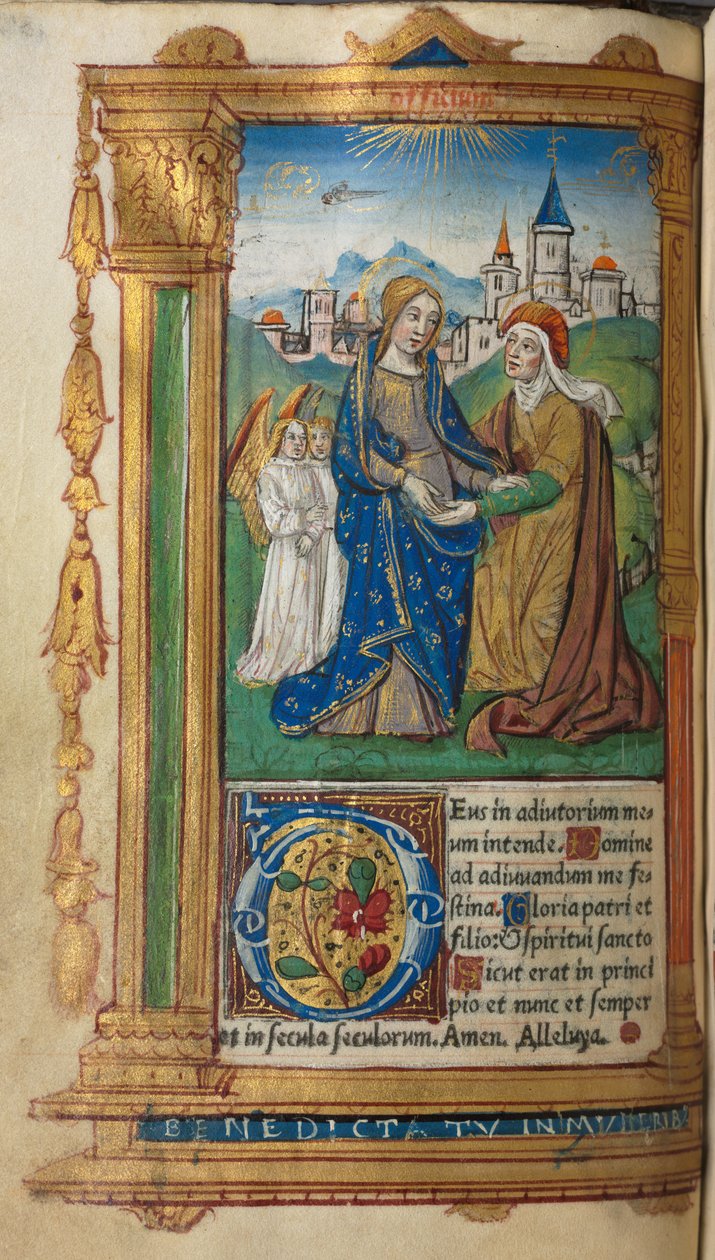 officium
Deus in adiutorium me-
um intende. Domine
ad adiuuandum me fe-
stina. Gloria patri et
filio: & spiritui sancto
Sicut erat in princi
pio et nunc et semper
et in secula seculorum. Amen. Alleluya.
BENEDICTA TV IN MVLIERIB9